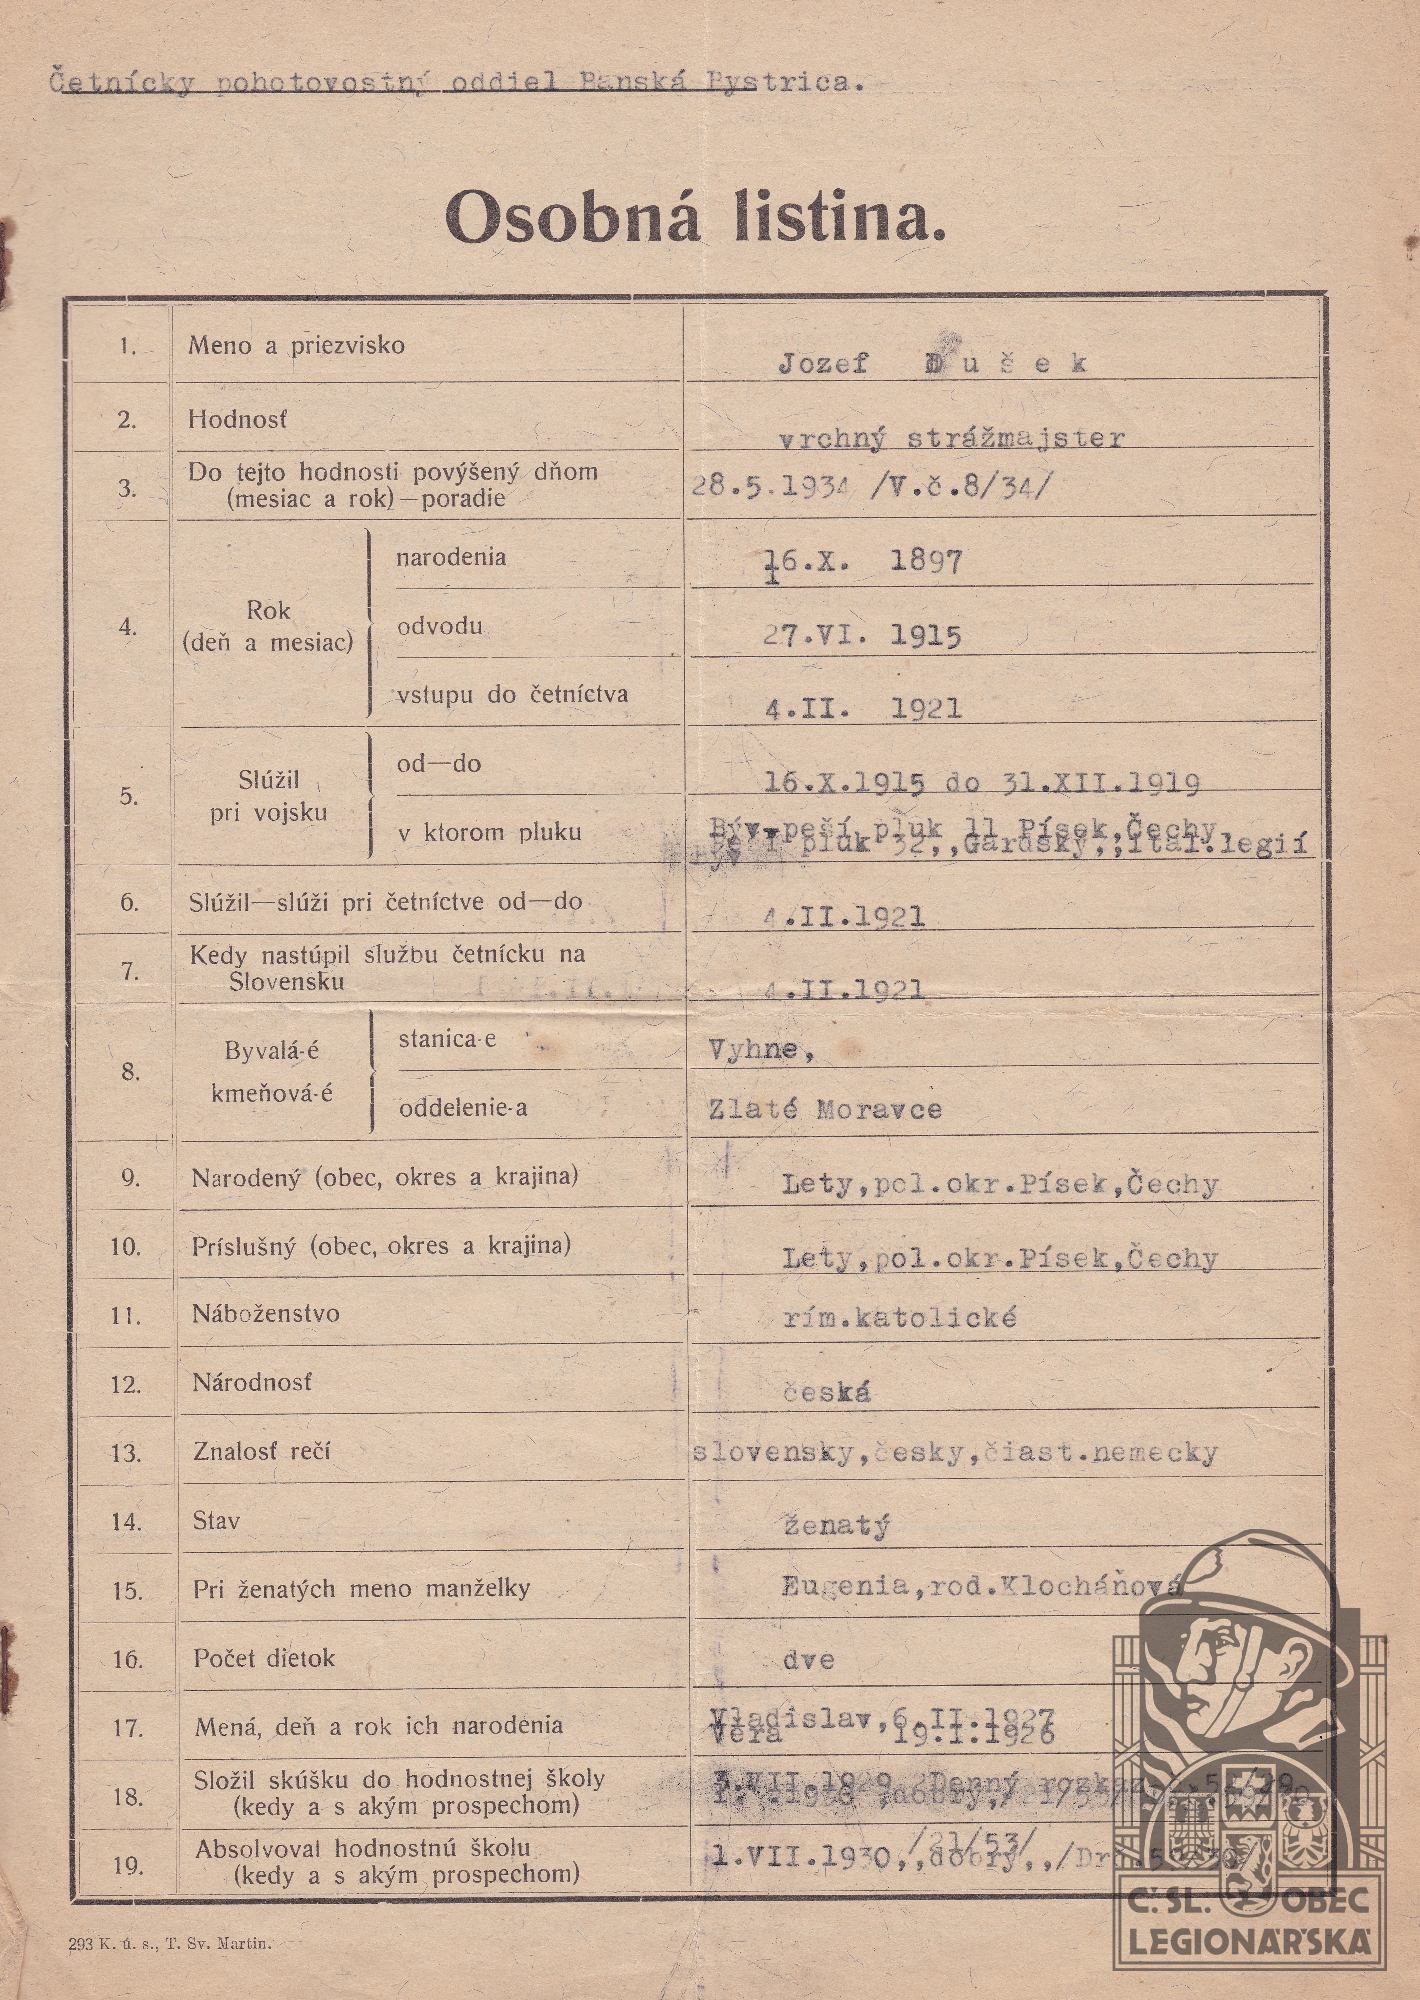 Četnícky pohotovostný oddiel Banská Bystrica.
Osobná listina.
1. Meno a priezvisko Jozef Dušek
2. Hodnosť vrchný strážmajster
3. Do tejto hodnosti povýšený dňom
(mesiac a rok)—poradie 28.5.1934 /V.č.8/34/
4. Rok
(deň a mesiac)
narodenia 16.X. 1897
odvodu 27.VI. 1915
vstupu do četníctva 4.II. 1921
5. Slúžil
pri vojsku
od—do 16.X.1915 do 31.XII.1919
v ktorom pluku Býv. peší pluk 11 Písek,Čechy
pluk 32,,Gardský,,ital.legií
6. Slúžil—slúži pri četníctve od—do 4.II.1921
7. Kedy nastúpil službu četnícku na
Slovensku 4.II.1921
8. Byvalá-é
kmeňová-é
stanica-e Vyhne,
oddelenie-a Zlaté Moravce
9. Narodený (obec, okres a krajina) Lety,pol.okr.Písek,Čechy
10. Príslušný (obec, okres a krajina) Lety,pol.okr.Písek,Čechy
11. Náboženstvo rím.katolické
12. Národnosť česká
13. Znalosť rečí slovensky,česky,čiast.nemecky
14. Stav ženatý
15. Pri ženatých meno manželky Eugenia,rod.Klocháňová
16. Počet dietok dve
17. Mená, deň a rok ich narodenia Vladislav,6.II.1927
Věra 19.I.1926
18. Složil skúšku do hodnostnej školy
(kedy a s akým prospechom) 3.VII.1929 Denný rozkaz
19. Absolvoval hodnostnú školu
(kedy a s akým prospechom) /21/53/
1.VII.1930,,dobrý,,
293 K. ú. s., T. Sv. Martin.
Č.SL. OBEC
LEGIONÁŘSKÁ